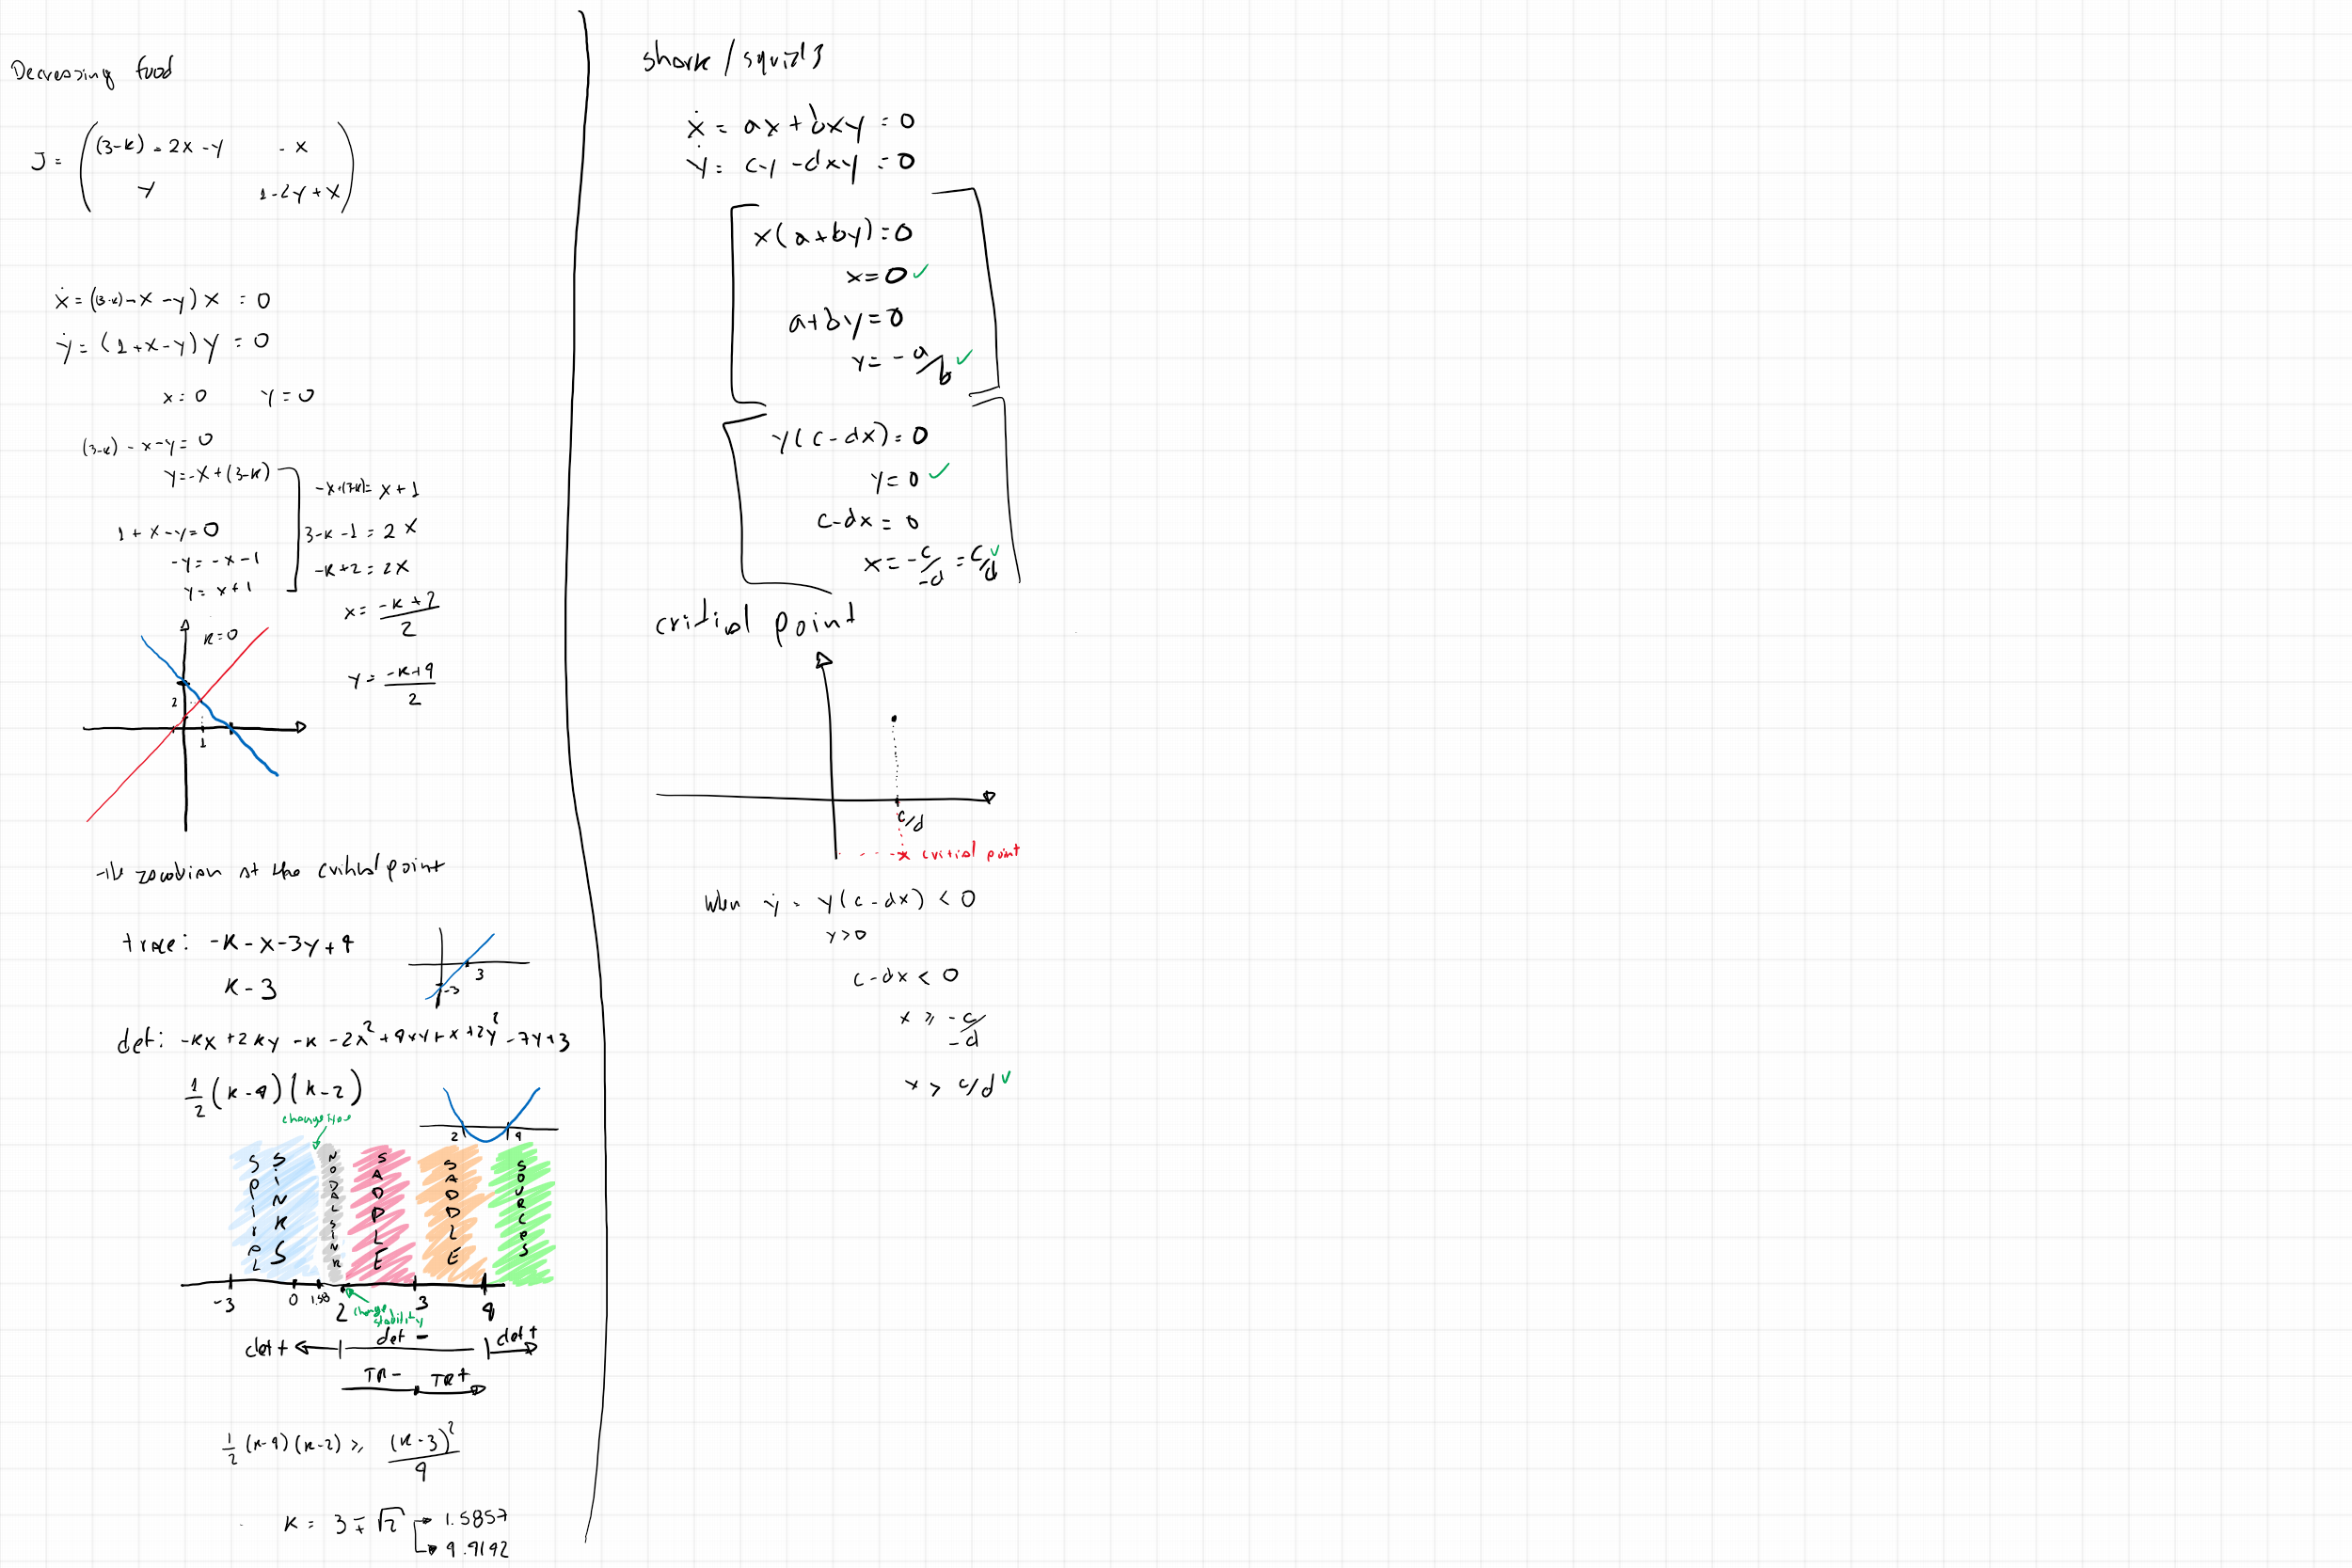 Decreasing food
J = ( (3-k) - 2x - y   - x
y   1 - 2y + x )
ẋ = ((3-k) - x - y) x = 0
ẏ = (1 + x - y) y = 0
x = 0   y = 0
(3-k) - x - y = 0
y = -x + (3-k)
1 + x - y = 0
-y = -x - 1
y = x + 1
-x+(3-k) = x + 1
3-k-1 = 2x
-k+2 = 2x
x = (-k+2)/2
y = (-k+4)/2
k=0
2
1
at the critical point
trace: -k - x - 3y + 4
k - 3
3
-3
det: -kx + 2ky - k - 2x² + 4xy + x + 2y² - 7y + 3
1/2 (k-4)(k-2)
change type
2   4
SPIRAL SINKS
NODAL SINK
SADDLE
SADDLE
SOURCES
-3   0   1.58   2   3   4
change stability
det +   det -   det +
TR-   TR+
1/2 (k-4)(k-2) ≥ (k-3)²/4
k = 3 ∓ √2
1.5857
4.4142
shark / squid 3
ẋ = ax + bxy = 0
ẏ = cy - dxy = 0
x(a+by) = 0
x = 0 ✓
a+by = 0
y = -a/b ✓
y(c-dx) = 0
y = 0 ✓
c-dx = 0
x = -c/-d = c/d ✓
critial point
c/d
x critial point
When ẏ = y(c-dx) < 0
y>0
c-dx < 0
x ≥ -c/-d
x > c/d ✓